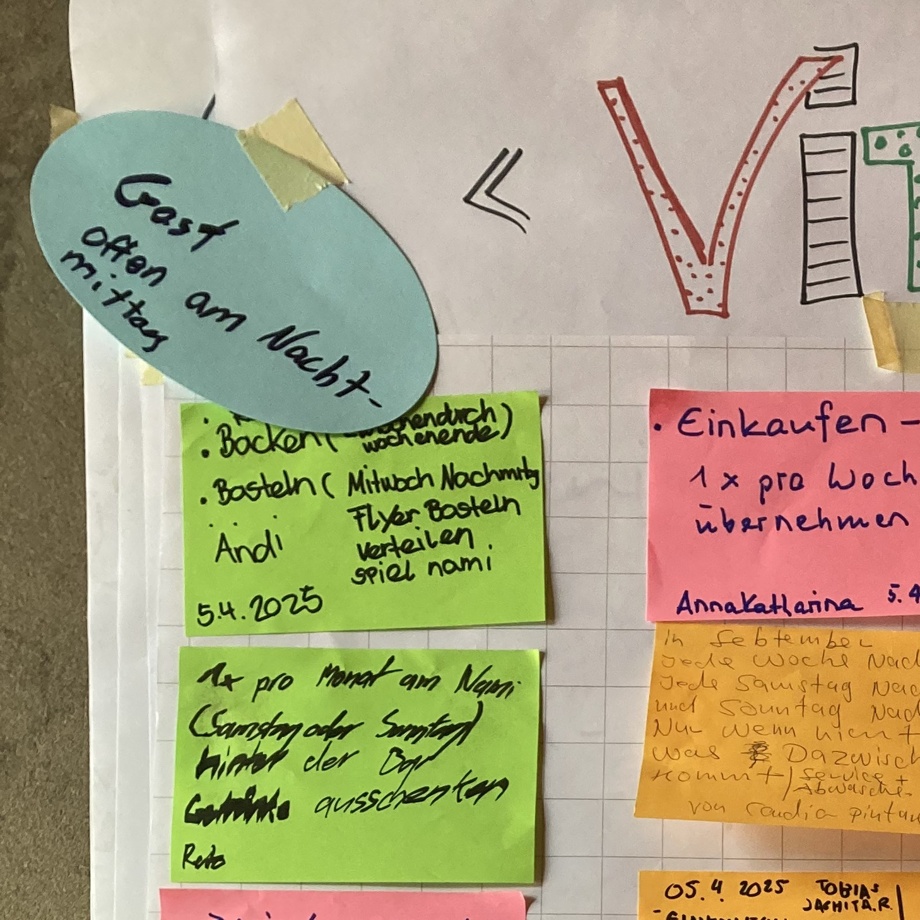 Gast
offen am Nacht-
mittag
« ViT
• Backen ( wochenende)
• Basteln ( Mitwoch Nachmittag
Flyer Basteln
Andi verteilen
spiel nami
5.4.2025
1x pro Monat am Nami
(Samstag oder Sonntag)
hinter der Bar
ausschenken
Reto
• Einkaufen –
1 x pro Woch
übernehmen
Annakatharina 5.4
in Sebtember
Jede Woche Nac
Jede Samstag Nac
und Sonntag Nac
Nur wenn nicht
was Dazwisch
kommt / Service +
Abwasche-
von Claudia
05.4 2025 TOBIAS
JASHITA.R.